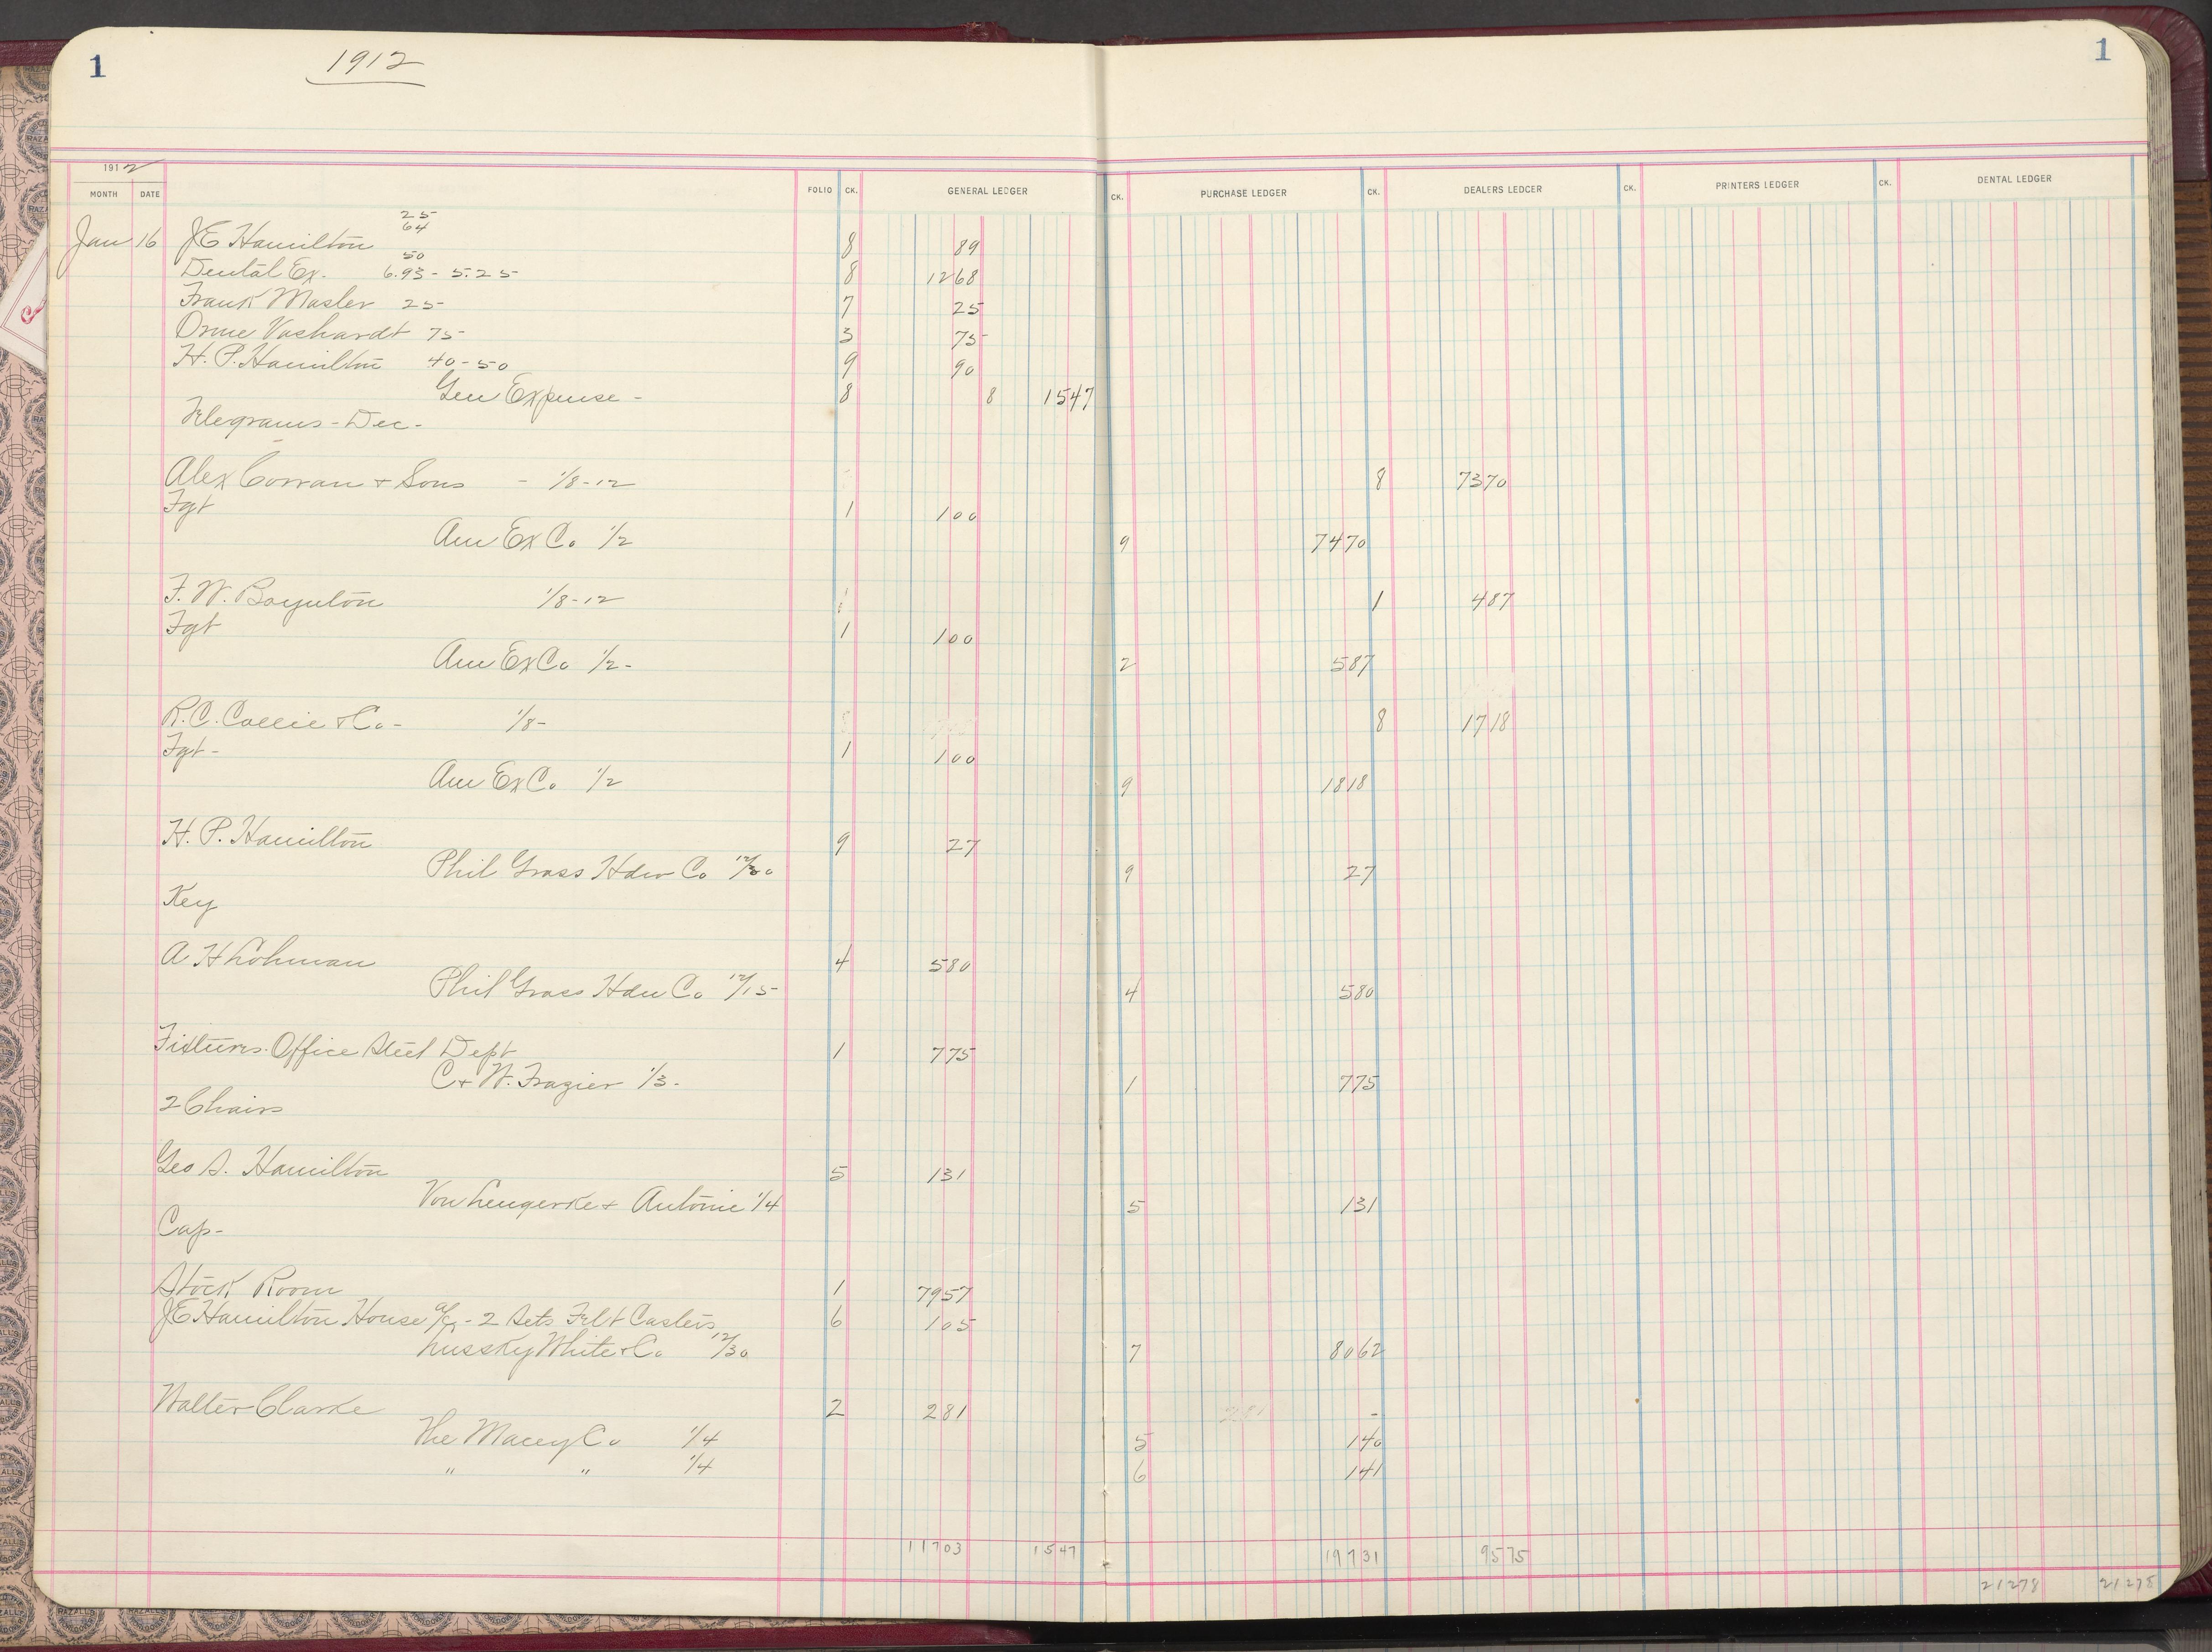 1 1912 1
191 2
MONTH DATE FOLIO CK. GENERAL LEDGER CK. PURCHASE LEDGER CK. DEALERS LEDGER CK. PRINTERS LEDGER CK. DENTAL LEDGER
25
64
Jan 16 JE Hamilton 8 89
50
Dental Ex. 6.93 - 5.25 8 1268
Frank Masler 25 7 25
Orme Vashardt 75 3 75
H. P. Hamilton 40-50 9 90
Gen Expense - 8 8 1547
Telegrams - Dec -
Alex Corran + Sons - 1/8-12 8 7370
Fgt 1 100
Am Ex Co 1/2 9 7470
F. W. Boynton 1/8-12 1 487
Fgt 1 100
Am Ex Co 1/2 - 2 587
R. C. Callie & Co - 1/8 - 8 1718
Fgt - 1 100
Am Ex Co 1/2 9 1818
H. P. Hamilton 9 27
Phil Grass Hdw Co 12/30 9 27
Key
A H Lohman 4 580
Phil Grass Hdw Co 12/15 4 580
Fixtures. Office Steel Dept 1 775
C + W. Frazier 1/3 - 1 775
2 Chairs
Geo S. Hamilton 5 131
Von Lengerke + Antoine 1/4 5 131
Cap -
Stock Room 1 7957
JE Hamilton House a/c - 2 Sets Felt Casters 6 105
Lussky White & Co 12/30 7 8062
Walter Clarke 2 281 -
The Macey Co 1/4 5 140
" " 1/4 6 141
11703 1547 19731 9575
21278 21278